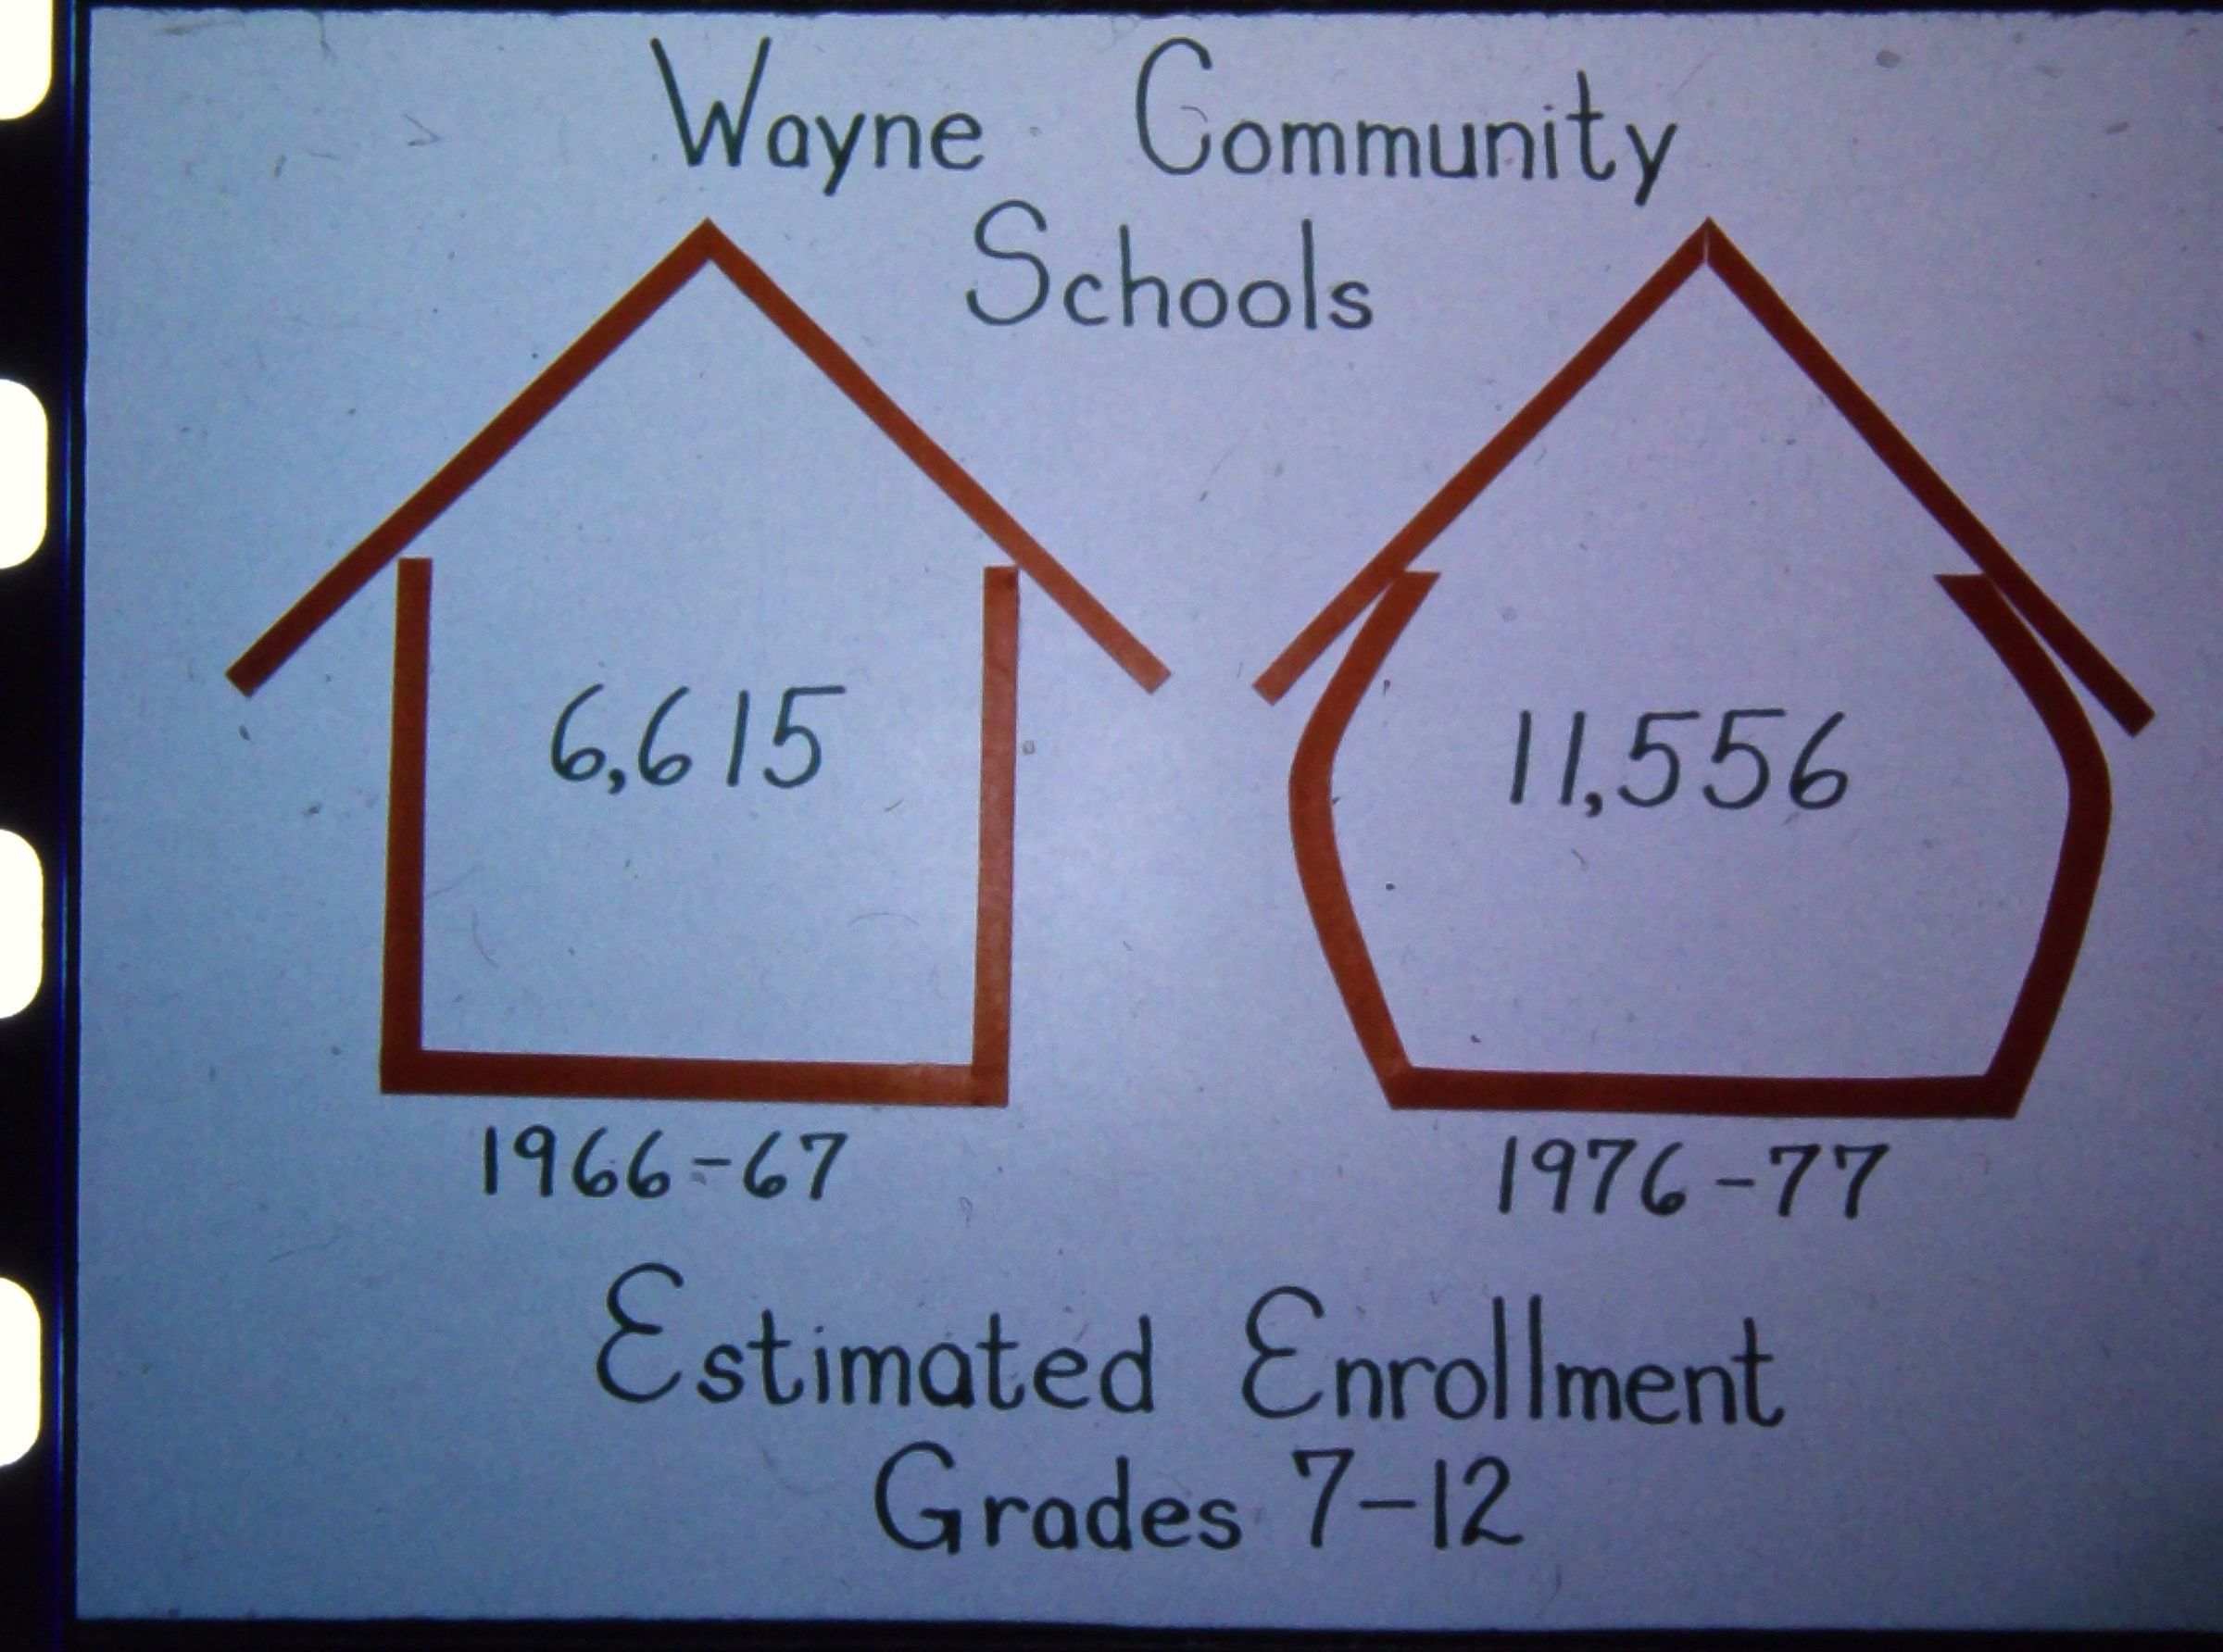 Wayne Community
Schools
6,615
11,556
1966-67
1976-77
Estimated Enrollment
Grades 7-12